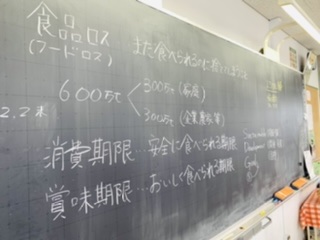 食品ロス
(フードロス)
まだ食べられるのに捨ててしまうこと
600万t
300万t(家庭)
300万t(企業
2.2
消費期限…安全に食べられる期限
賞味期限…おいしく食べられる期限
Sustainable
Development
Goals